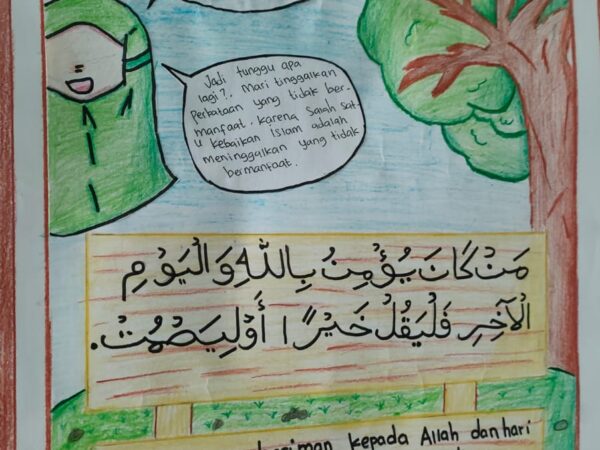 Jadi tunggu apa
lagi?. Mari tinggalkan
Perkataan yang tidak ber-
manfaat. karena Salah sat-
u kebaikan Islam adalah
meninggalkan yang tidak
bermanfaat.
مَنْ كَانَ يُؤْمِنُ بِاللّٰهِ وَالْيَوْمِ
الْآخِرِ فَلْيَقُلْ خَيْرًا أَوْلِيَصْمُتْ.
beriman kepada Allah dan hari